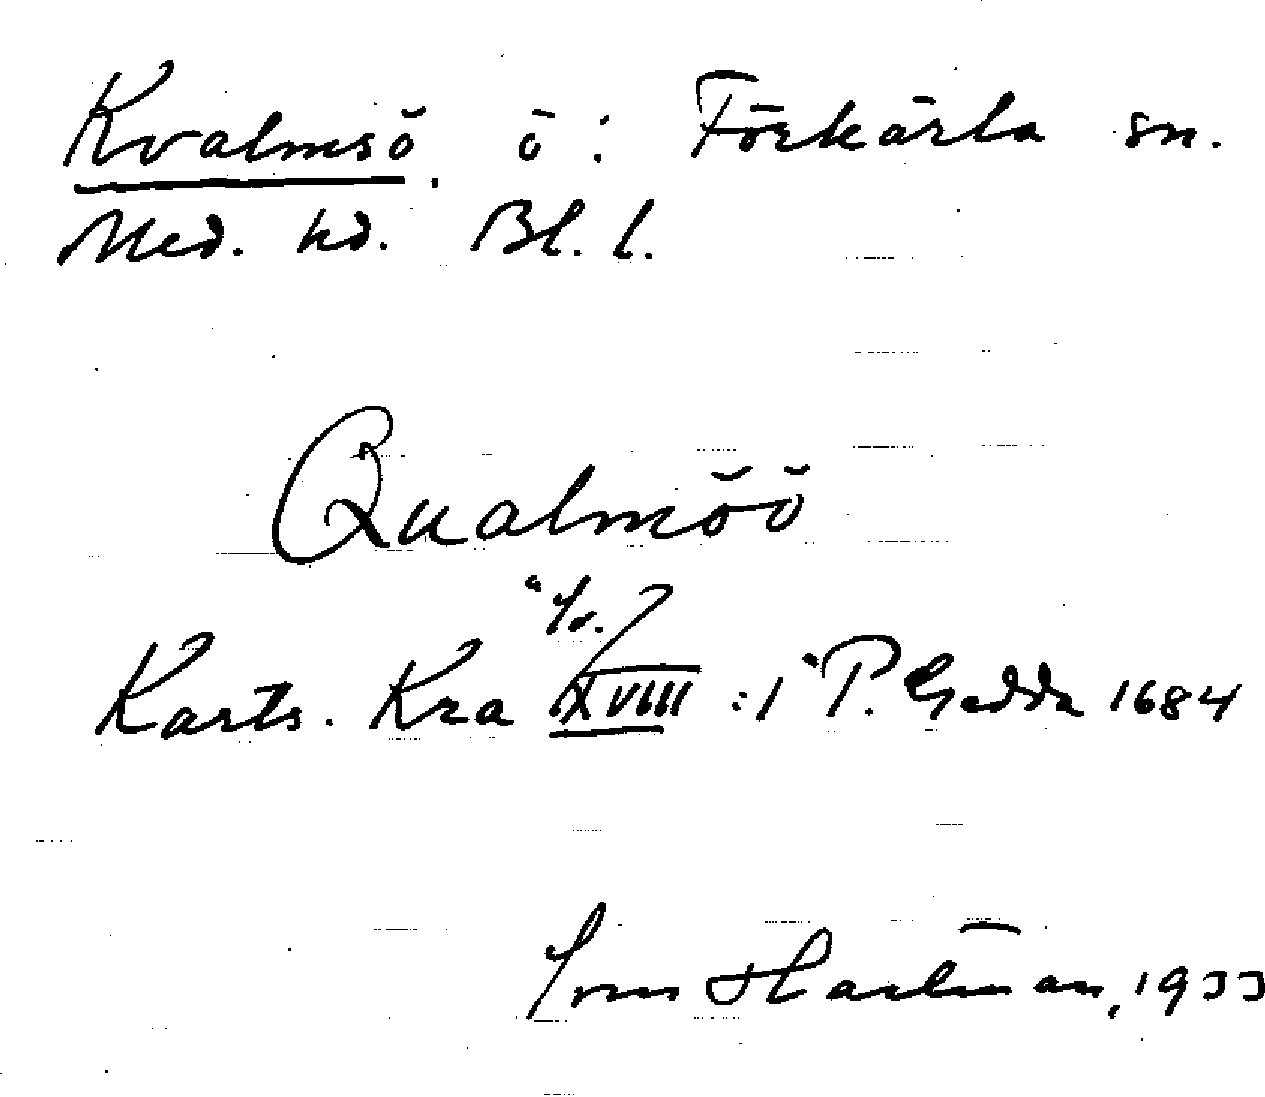 Kvalmsö. ö: Förkärla sn.
Med. hd. Bl. l.
Qualmöö
Karts. Kra XVIII :1 P. Gedda 1684
Hartman, 1933